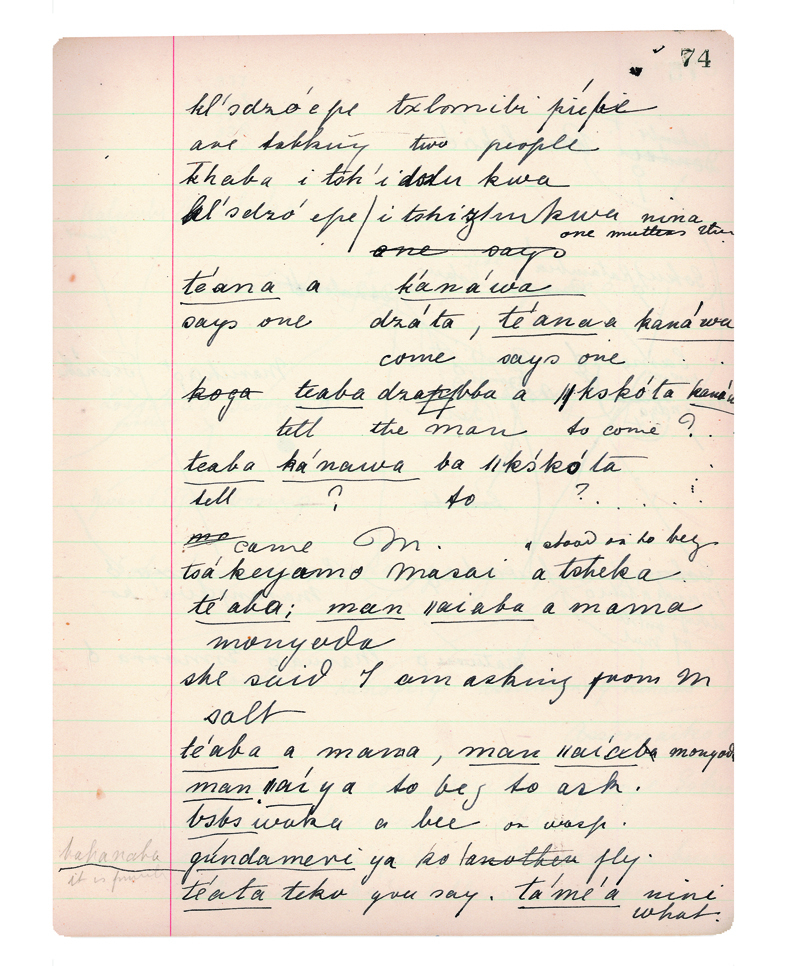 74
kl'sdzó'epe txlomibi píípie
are talking two people
khaba i tsh'idodu kwa
kl'sdzó epe/i tshizturkwa nina
one mutters
one says
téana a kánáwa
says one dzáta, téana a kanáwa
come says one
koga teaba dza bba a ǁkskóta
tell the man to come ?
teaba ká'nawa ba ǁkśkóta
tell ? to ?
came M. stood on to beg
tsákeyamo Masai a tsheka
téaba; man ǁaiaba a mama
monyoda
she said I am asking from M
salt
téaba a mama, man ǁaíaba
man ǁaíya to beg to ask.
bsbs iwaka a bee or wasp.
gúndameri ya ko another fly.
bahanaba
it is
téata teko you say. tá'mé'a nini
what.